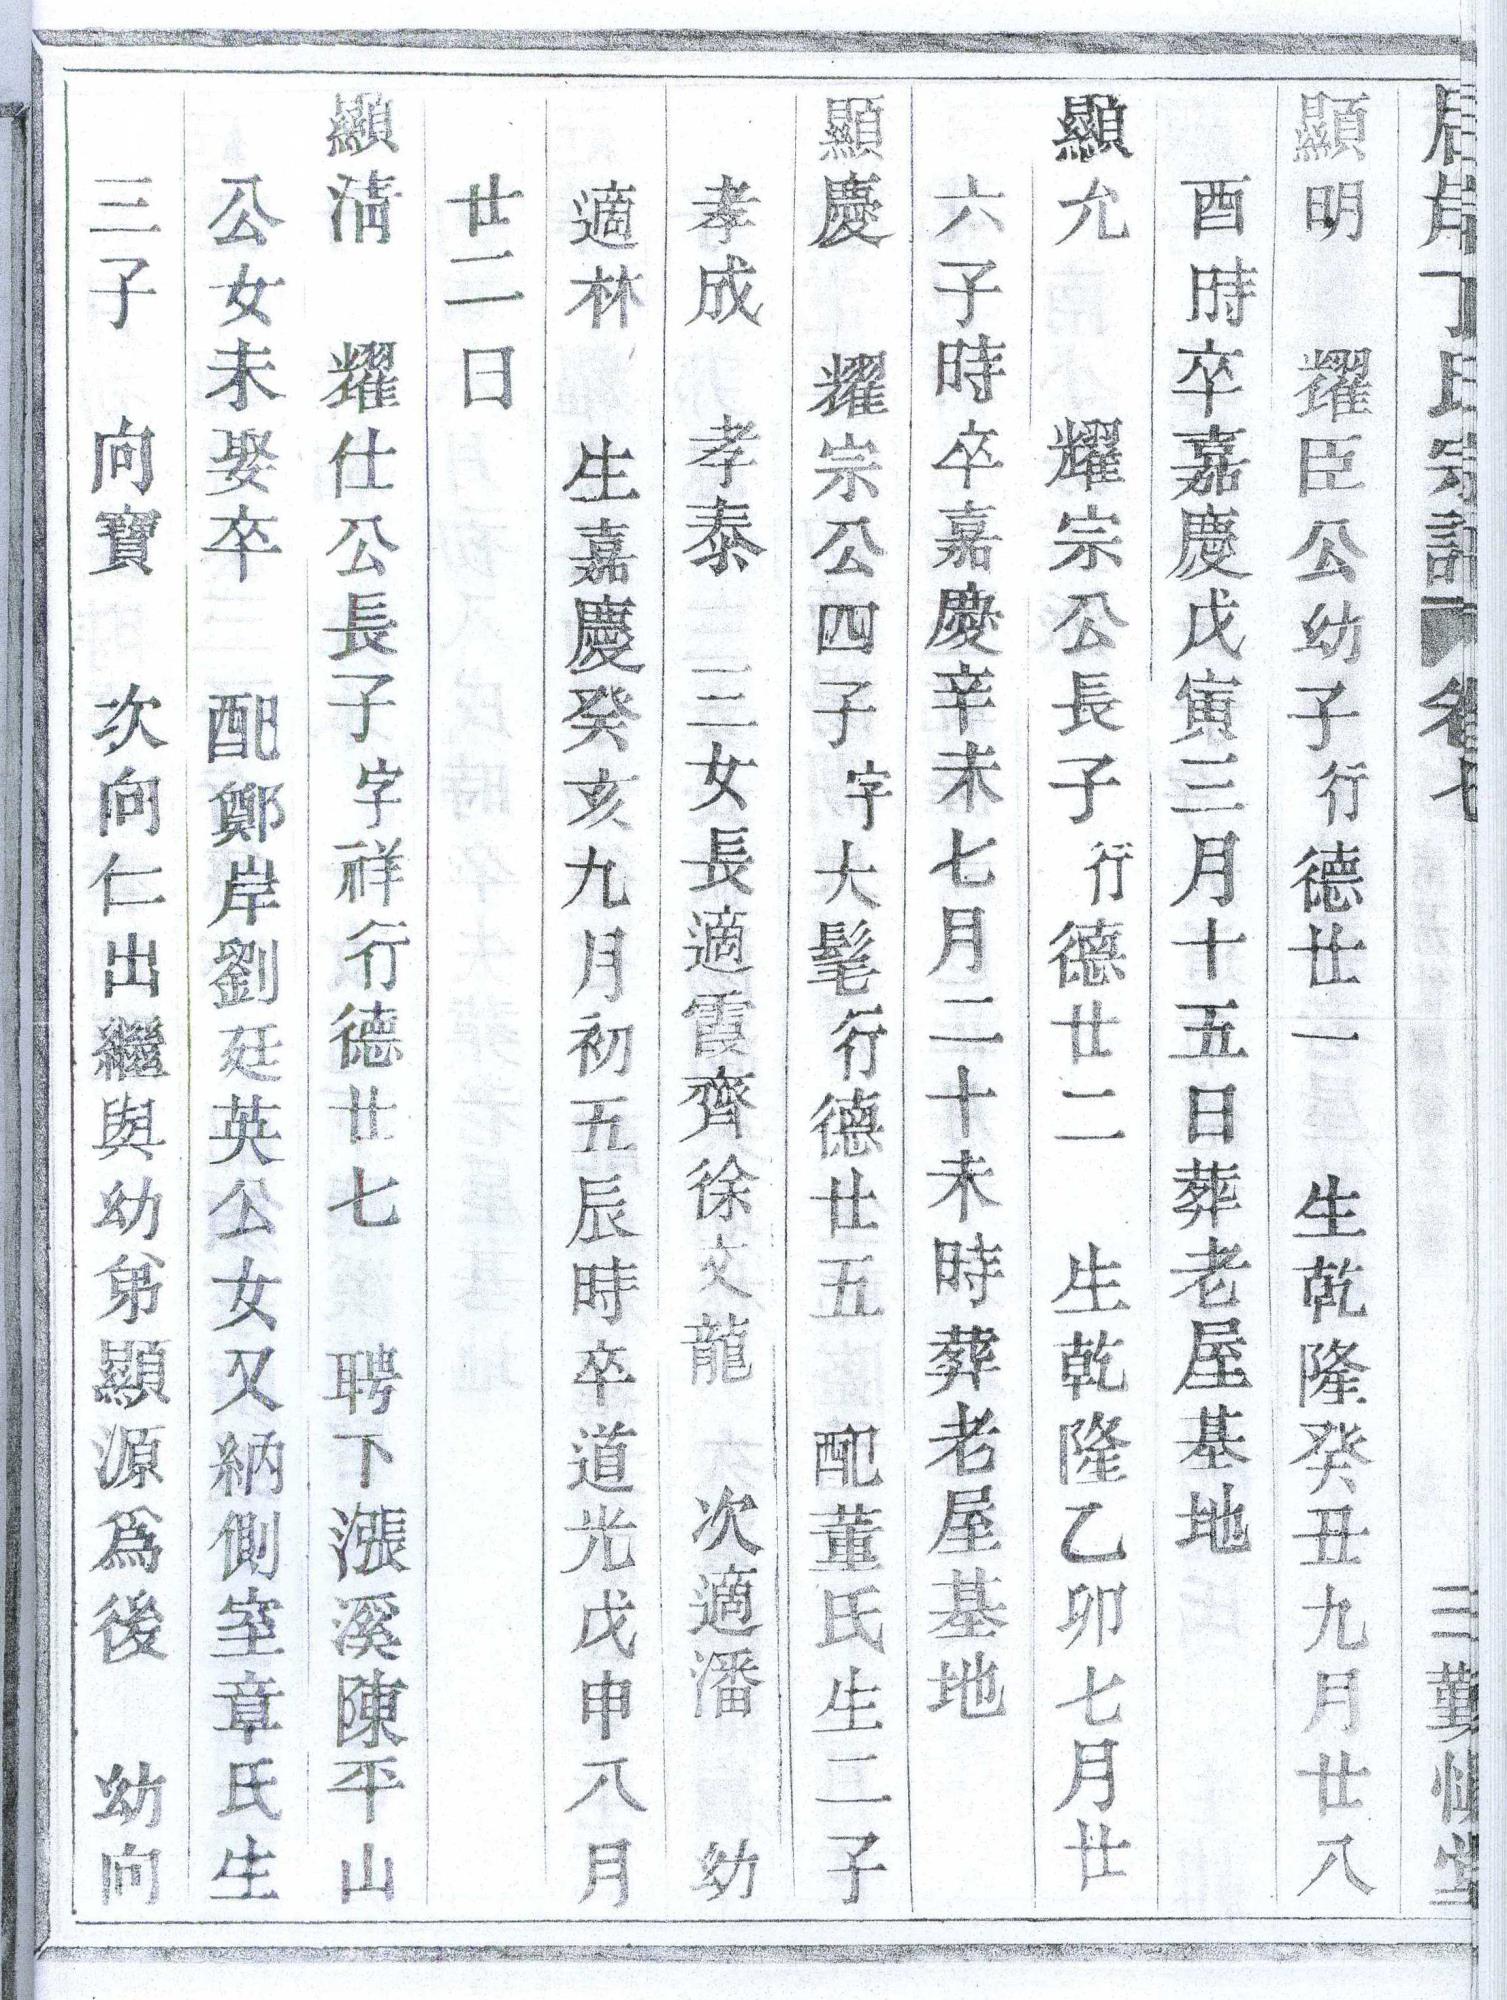 丁氏宗譜 卷七 三 勤慎堂
顯明 耀臣公幼子行德廿一 生乾隆癸丑九月廿八
酉時卒嘉慶戊寅三月十五日葬老屋基地
顯允 耀宗公長子行德廿二 生乾隆乙卯七月廿
六子時卒嘉慶辛未七月二十未時葬老屋基地
顯慶 耀宗公四子字大髦行德廿五 配董氏生二子
孝成 孝泰 三女長適霞齊徐文龍 次適潘 幼
適林 生嘉慶癸亥九月初五辰時卒道光戊申八月
廿二日
顯清 耀仕公長子字祥行德廿七 聘下漲溪陳平山
公女未娶卒 配鄭岸劉廷英公女又納側室章氏生
三子 向寶 次向仁出繼與幼弟顯源爲後 幼向